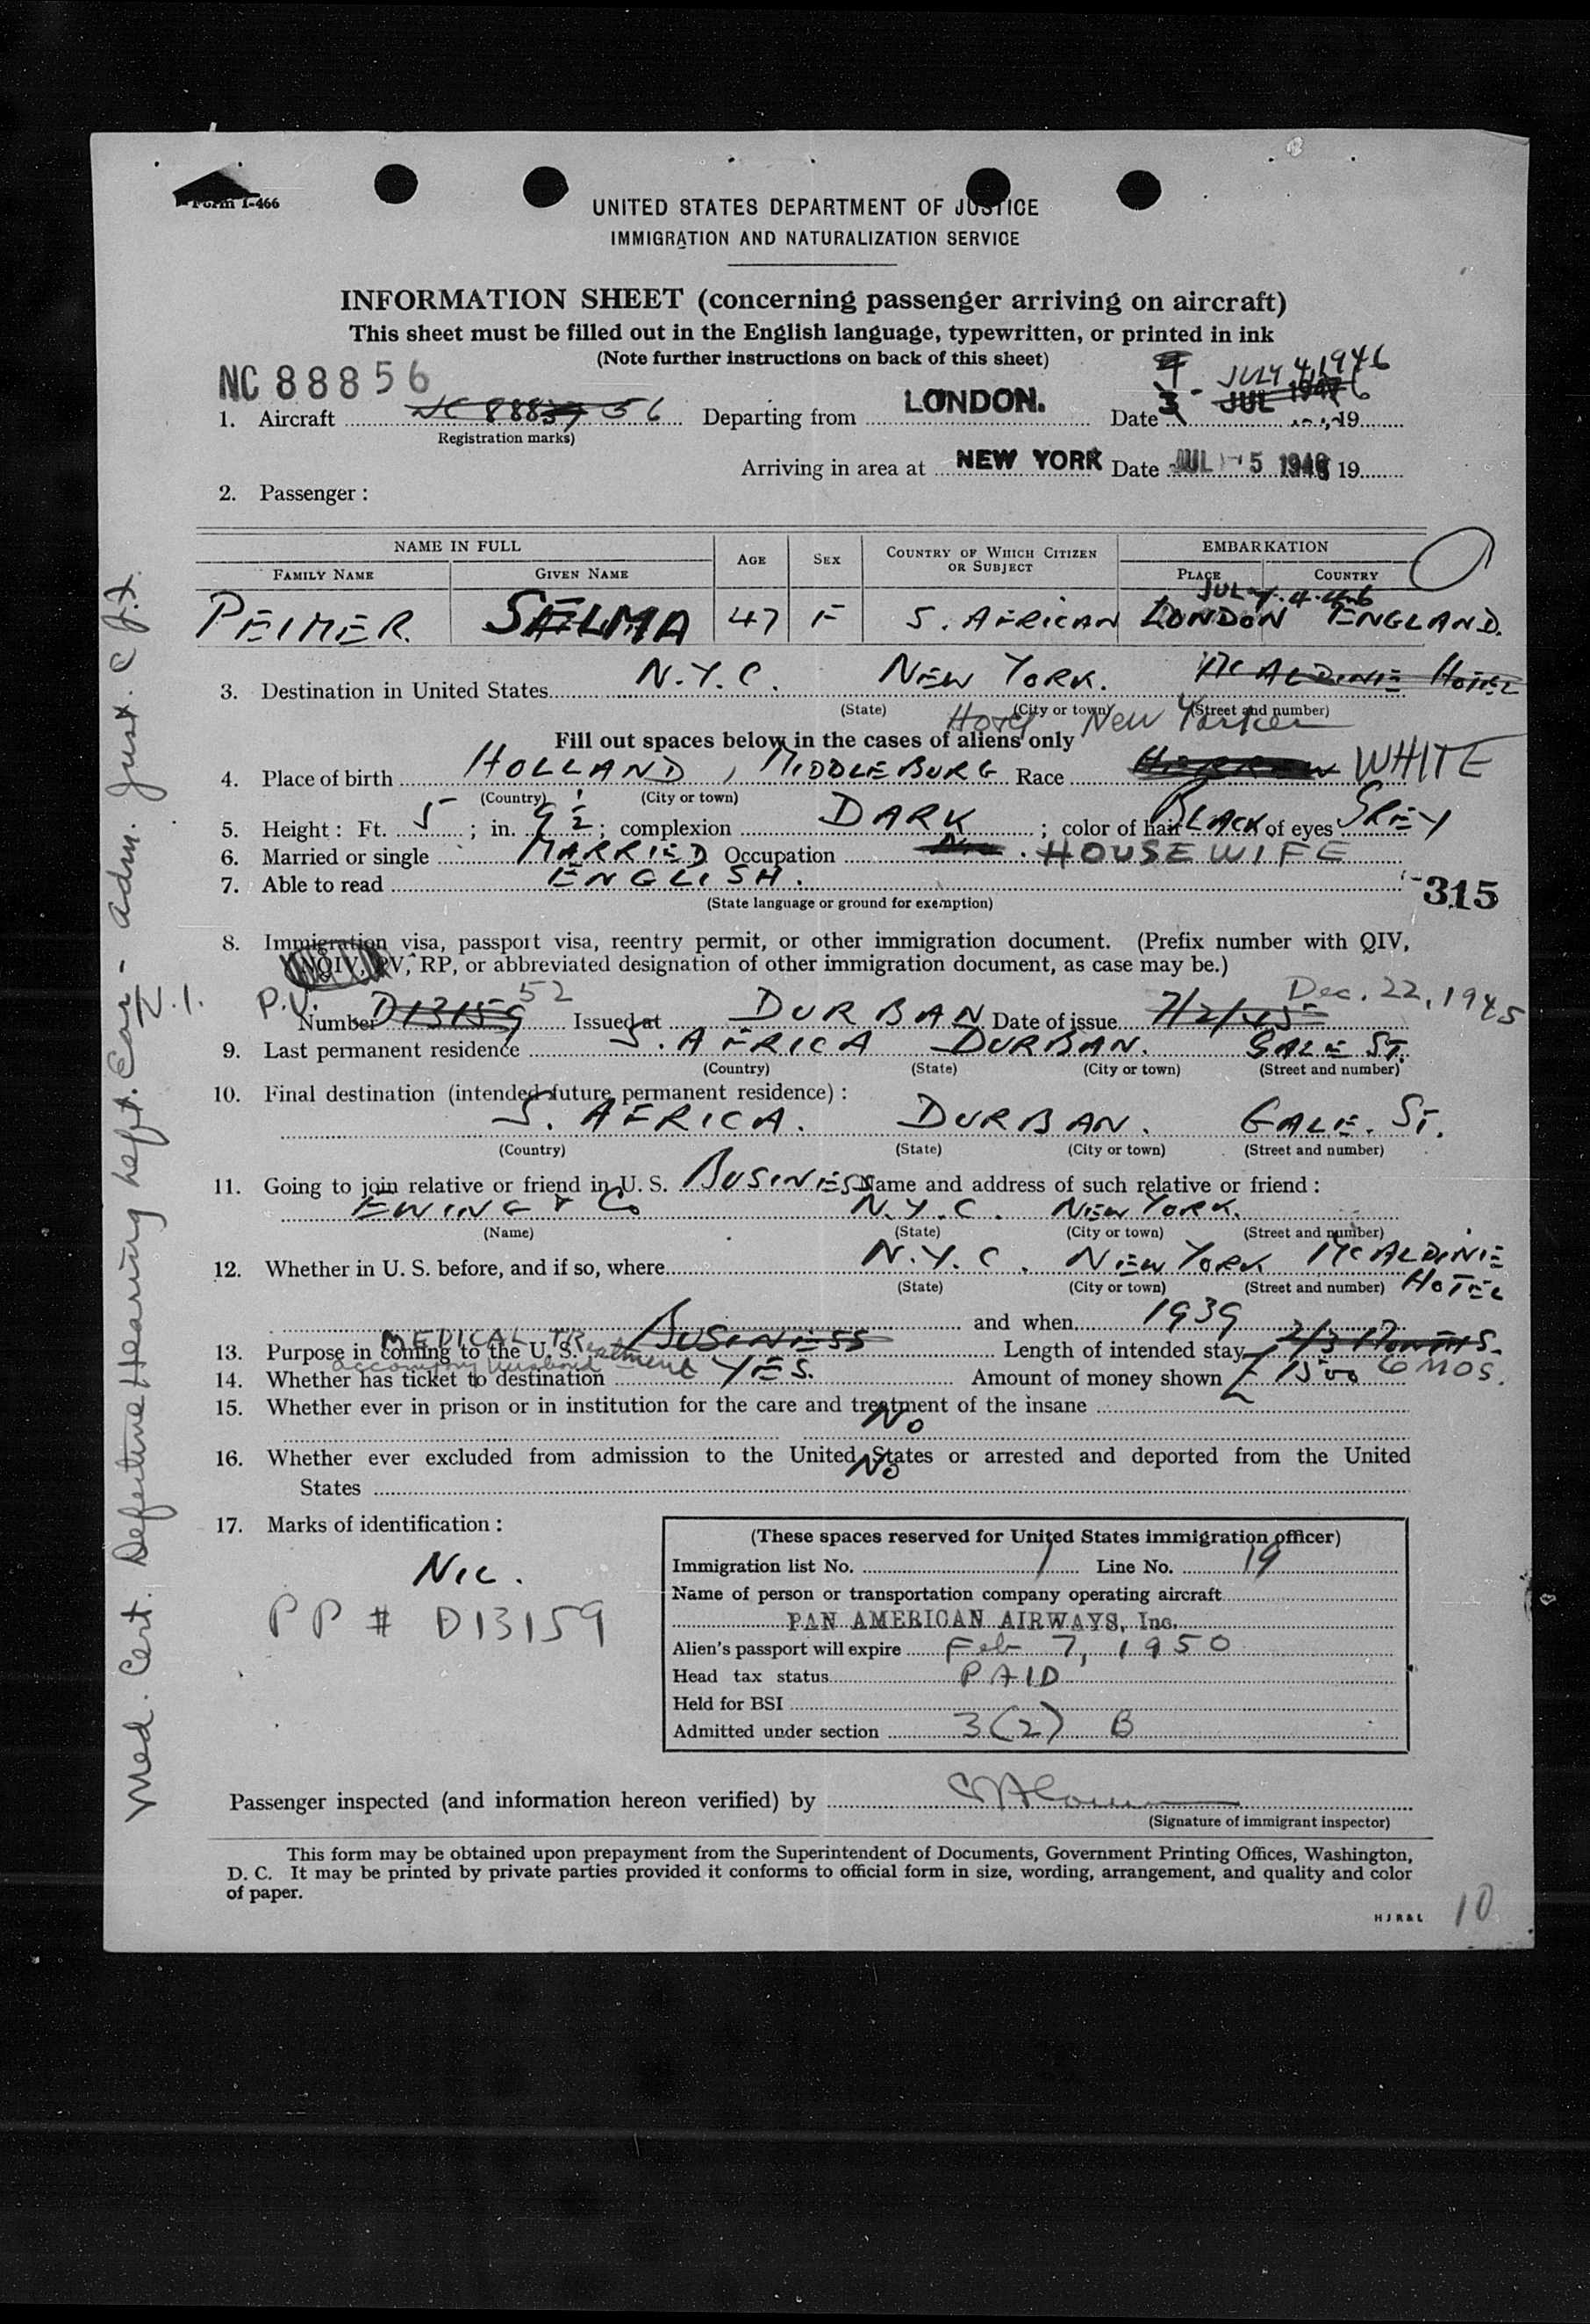 Form I-466
UNITED STATES DEPARTMENT OF JUSTICE
IMMIGRATION AND NATURALIZATION SERVICE
INFORMATION SHEET (concerning passenger arriving on aircraft)
This sheet must be filled out in the English language, typewritten, or printed in ink
(Note further instructions on back of this sheet)
NC 88856
JULY 4, 1946
1. Aircraft NC 88839 56 Departing from LONDON. Date 3 JUL 1946 19
(Registration marks)
Arriving in area at NEW YORK Date JUL 5 1946 19
2. Passenger:
NAME IN FULL AGE SEX COUNTRY OF WHICH CITIZEN OR SUBJECT EMBARKATION
FAMILY NAME GIVEN NAME PLACE COUNTRY
JULY 4 46
PEIMER. SELMA 47 F S. AFRICAN LONDON ENGLAND.
3. Destination in United States N.Y.C. NEW YORK. MCALPINE HOTEL
(State) (City or town) (Street and number)
Hotel New Yorker
Fill out spaces below in the cases of aliens only
4. Place of birth HOLLAND, MIDDLEBURG Race WHITE
(Country) (City or town)
5. Height: Ft. 5; in. 9½; complexion DARK; color of hair BLACK of eyes GREY
6. Married or single MARRIED Occupation HOUSEWIFE
7. Able to read ENGLISH.
(State language or ground for exemption)
315
8. Immigration visa, passport visa, reentry permit, or other immigration document. (Prefix number with QIV,
NQIV, PV, RP, or abbreviated designation of other immigration document, as case may be.)
P.V. 52 Dec. 22, 1945
Number D13159 Issued at DURBAN Date of issue 7/2/45
9. Last permanent residence S. AFRICA DURBAN. GALE ST.
(Country) (State) (City or town) (Street and number)
10. Final destination (intended future permanent residence):
S. AFRICA. DURBAN. GALE. ST.
(Country) (State) (City or town) (Street and number)
11. Going to join relative or friend in U. S. BUSINESS Name and address of such relative or friend:
EWING & Co N.Y.C. NEW YORK.
(Name) (State) (City or town) (Street and number)
12. Whether in U. S. before, and if so, where N.Y.C. NEW YORK MCALPINE
(State) (City or town) (Street and number) HOTEL
and when 1939
13. Purpose in coming to the U. S. MEDICAL TReatment BUSINESS Length of intended stay 2/3 MONTHS.
accompany husband
14. Whether has ticket to destination YES. Amount of money shown £1500 6 MOS.
15. Whether ever in prison or in institution for the care and treatment of the insane
No
16. Whether ever excluded from admission to the United States or arrested and deported from the United
States No
17. Marks of identification:
NIL.
PP # D13159
(These spaces reserved for United States immigration officer)
Immigration list No. 1 Line No. 19
Name of person or transportation company operating aircraft
PAN AMERICAN AIRWAYS, Inc.
Alien's passport will expire Feb 7, 1950
Head tax status PAID
Held for BSI
Admitted under section 3(2) B
Passenger inspected (and information hereon verified) by
(Signature of immigrant inspector)
This form may be obtained upon prepayment from the Superintendent of Documents, Government Printing Offices, Washington,
D. C. It may be printed by private parties provided it conforms to official form in size, wording, arrangement, and quality and color
of paper.
HJR&L 10
Med. Cert. Defective Hearing left. Ear - Adm. Just.